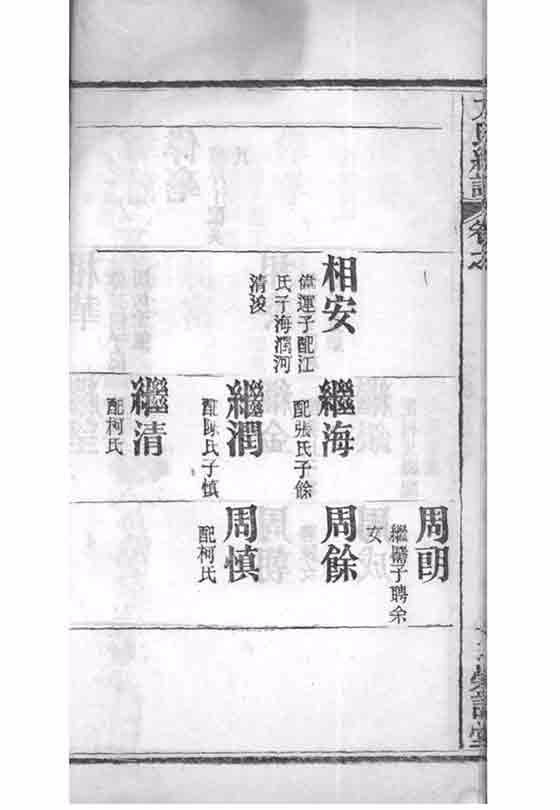 相安
偉運子配江
氏子海潤河
清浚
繼海
配張氏子餘
繼潤
配陳氏子慎
繼清
配柯氏
周明
子聘余
女
周餘
周慎
配柯氏